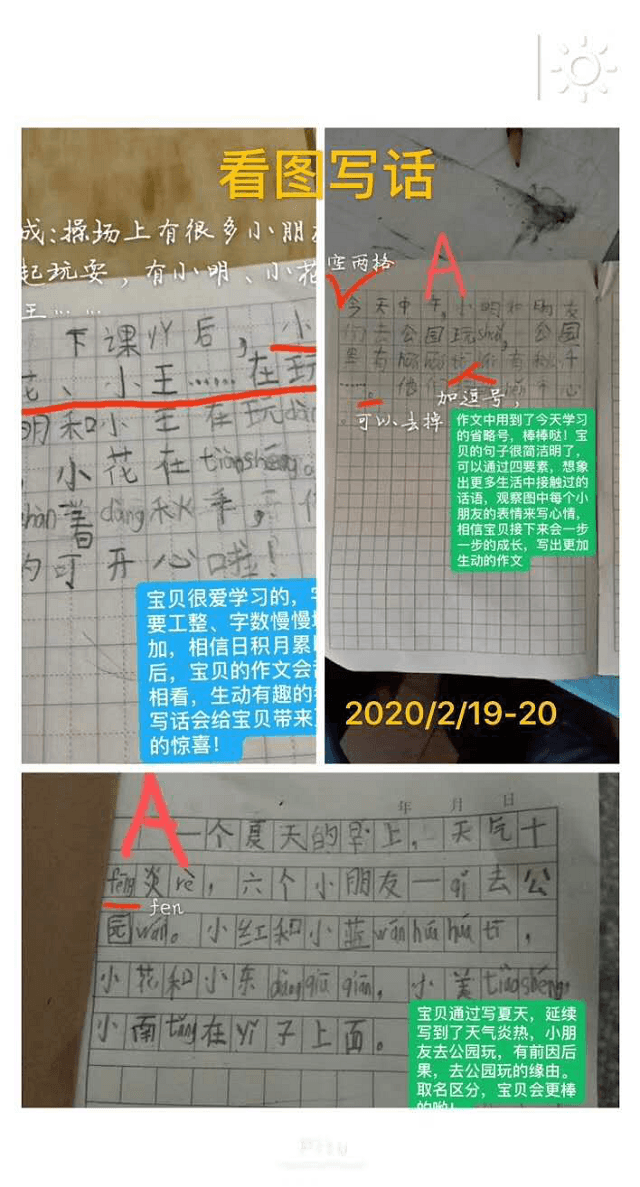 看图写话
成:操场上有很多小朋友
起玩耍，有小明、小花
王……
下课以后，小
花、小王……在玩
明和小王在玩dàng
，小花在tiàoshéng。
着dàng秋千，
的可开心啦！
宝贝很爱学习的，字
要工整、字数慢慢增
加，相信日积月累以
后，宝贝的作文会刮
相看，生动有趣的看
写话会给宝贝带来更
的惊喜！
空两格
A
今天中午，小明和朋友
们去公园玩shuǎ，公园
里有
……。他们
加逗号，
可以去掉
作文中用到了今天学习
的省略号，棒棒哒！宝
贝的句子很简洁明了，
可以通过四要素，想象
出更多生活中接触过的
话语，观察图中每个小
朋友的表情来写心情，
相信宝贝接下来会一步
一步的成长，写出更加
生动的作文
2020/2/19-20
A
年 月 日
一个夏天的早上，天气十
fēng炎rè，六个小朋友一qǐ去公
fen
园wán。小红和小蓝wánhuáhuátī，
小花和小东dàngqiūqiān，小美tiàoshéng，
小南tǎng在yǐ子上面。
宝贝通过写夏天，延续
写到了天气炎热，小朋
友去公园玩，有前因后
果，去公园玩的缘由。
取名区分，宝贝会更棒
的哟！